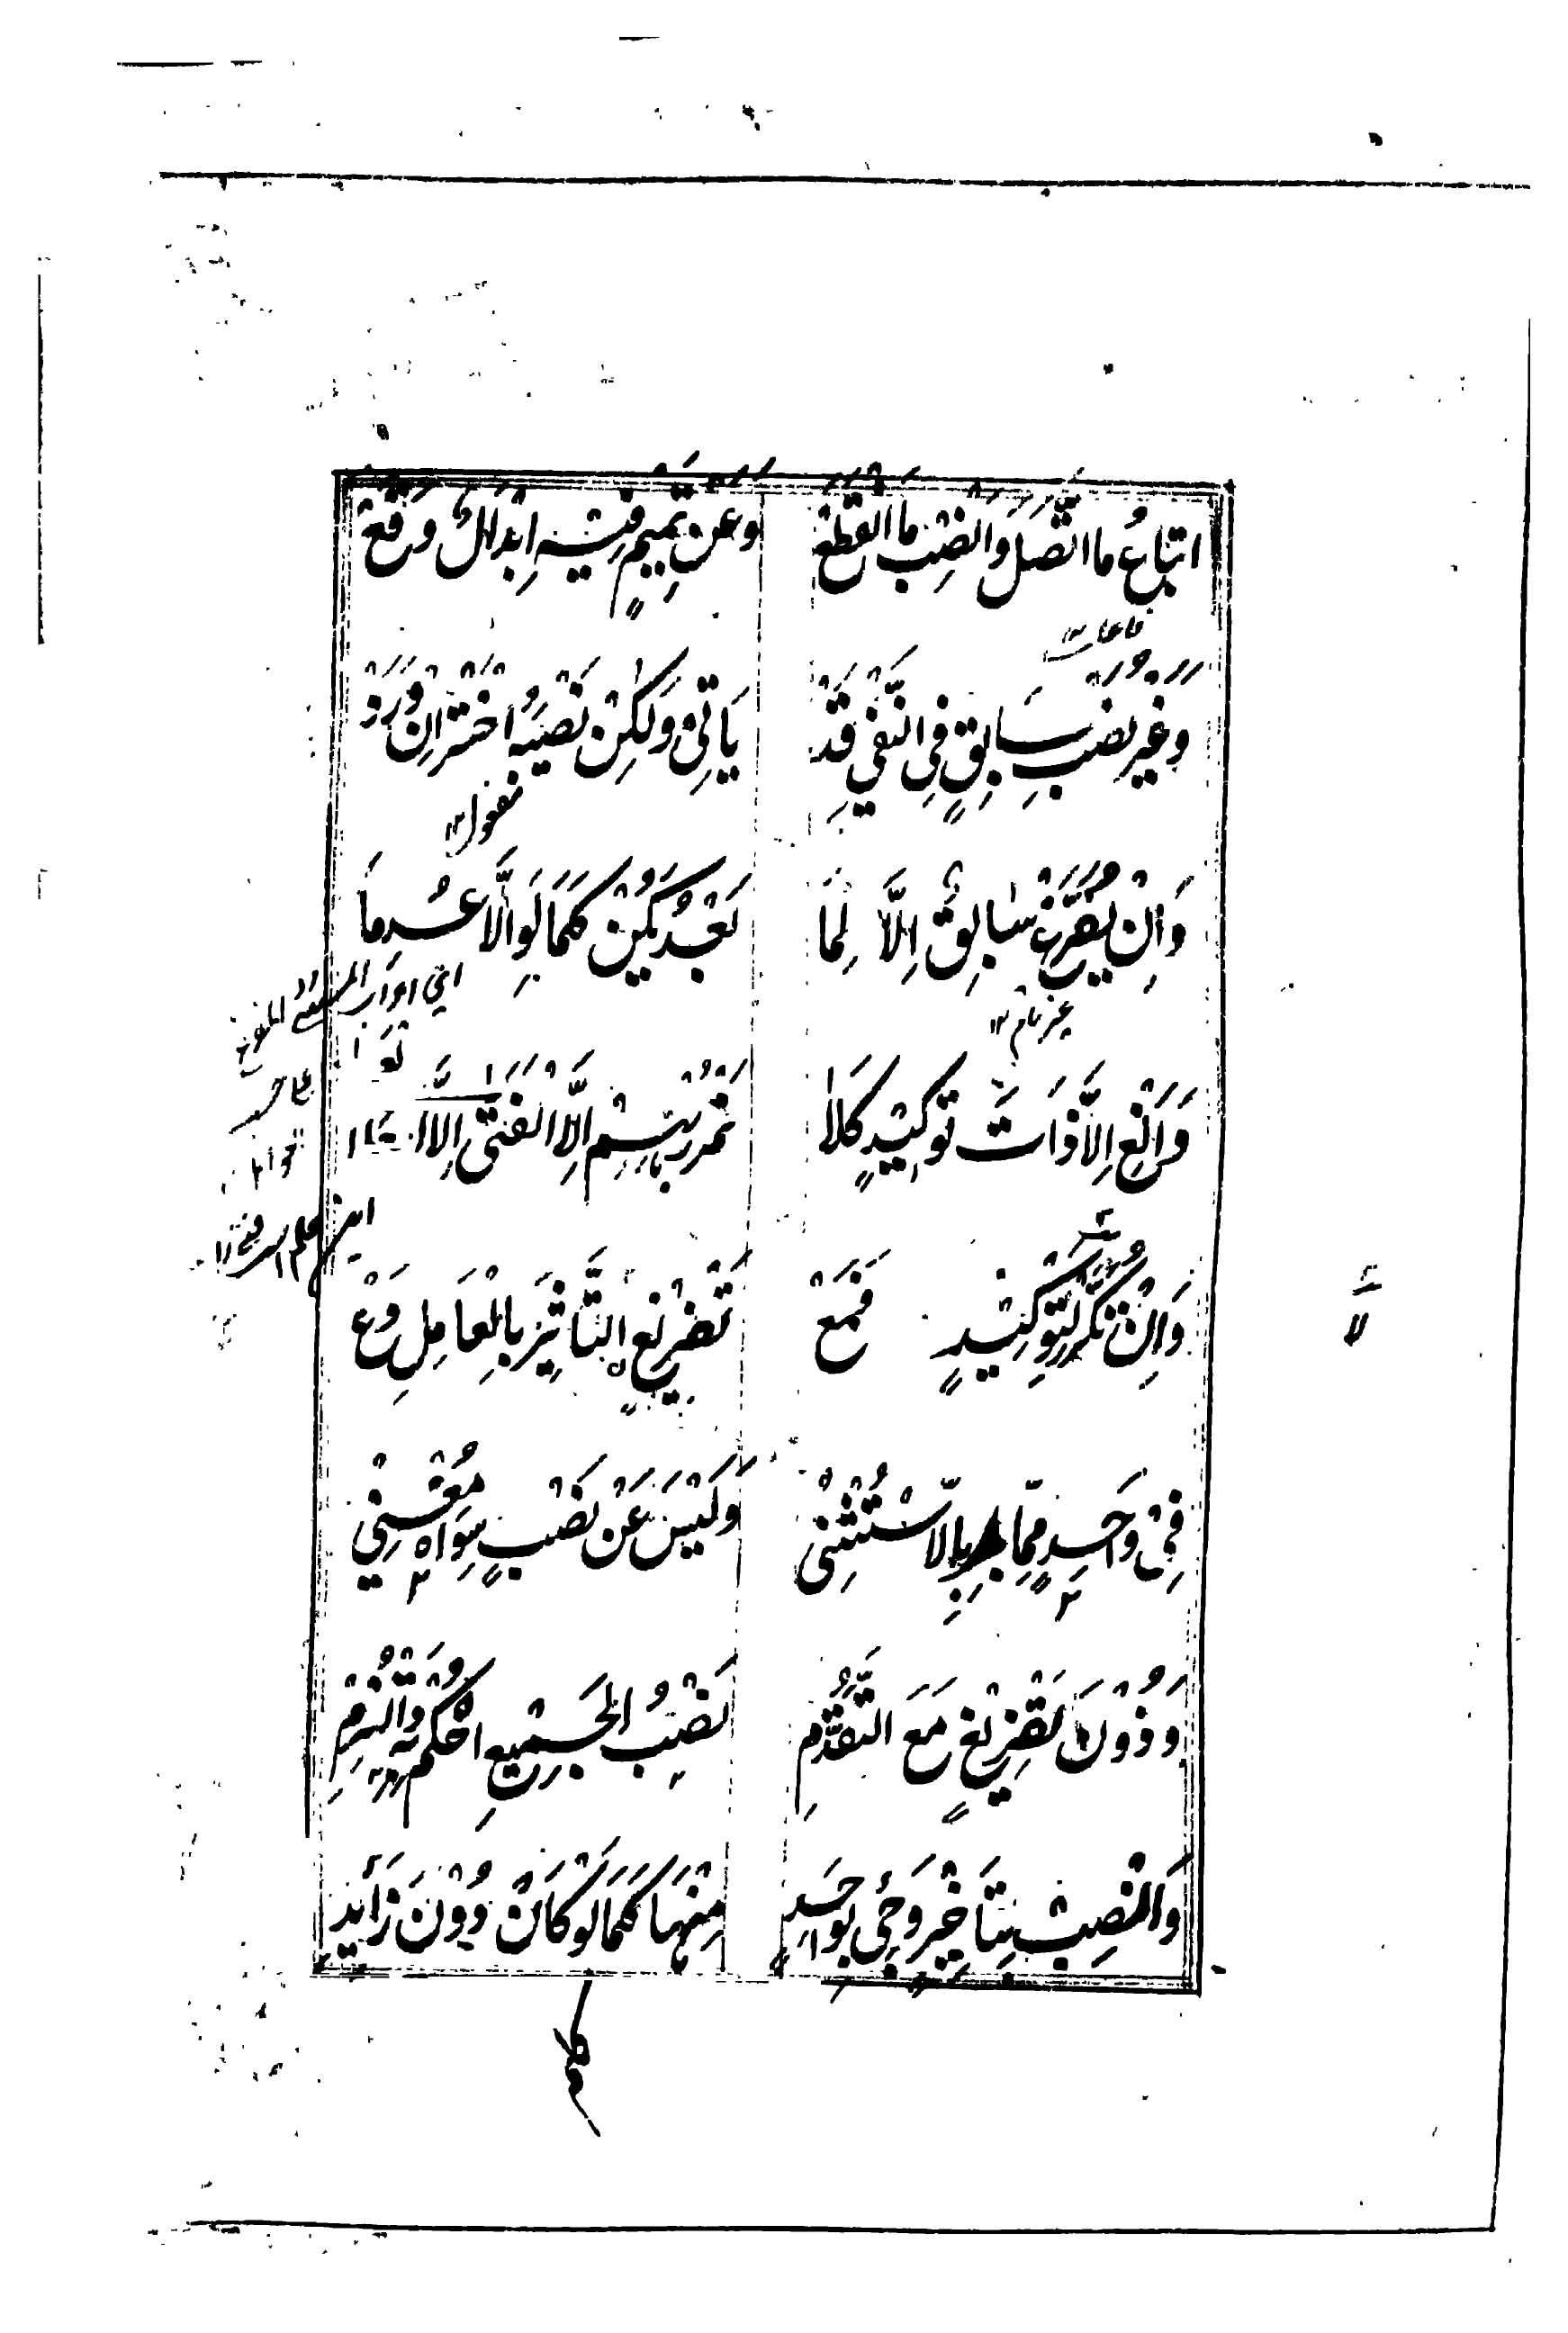 اتباعُ ما اتَّصَلَ وَانْصِبْ مَا انْقَطَعْ وَعَنْ تَمِيمٍ فِيْهِ اِبْدَالٌ وَقَعْ
فاعل ١٢
وَغَيْرُ نَصْبِ سَابِقٍ فِي النَّفْيِ قَدْ يَاْتِيْ وَلٰكِنْ نَصْبَهُ اخْتَرْ اِنْ وَرَدْ
مفعول ١٢
وَاِنْ يُفَرَّغْ سَابِقٌ اِلَّا لِمَا بَعْدُ يَكُنْ كَمَا لَوِ الَّا عُدِمَا
وَاَلْغِ اِلَّا ذَاتَ تَوْكِيْدٍ كَلَا تَمْرُرْ بِهِمْ اِلَّا الْفَتٰى اِلَّا
وَاِنْ تُكَرَّرْ لِتَوْكِيْدٍ فَمَعْ تَفْرِيْغٍ التَّاثِيْرَ بِالْعَامِلِ دَعْ
فِيْ وَاحِدٍ مِمَّا بِاِلَّا اسْتُثْنِيْ وَلَيْسَ عَنْ نَصْبٍ سِوَاهُ مُغْنِيْ
وَدُوْنَ تَفْرِيْغٍ مَعَ التَّقَدُّمِ نَصْبُ الْجَمِيْعِ احْكُمْ بِهِ وَالْتَزِمْ
وَانْصِبْ لِتَاخِيْرٍ وَجِئْ بِوَاحِدٍ مِنْهَا كَمَا لَوْ كَانَ دُوْنَ زَائِدٍ